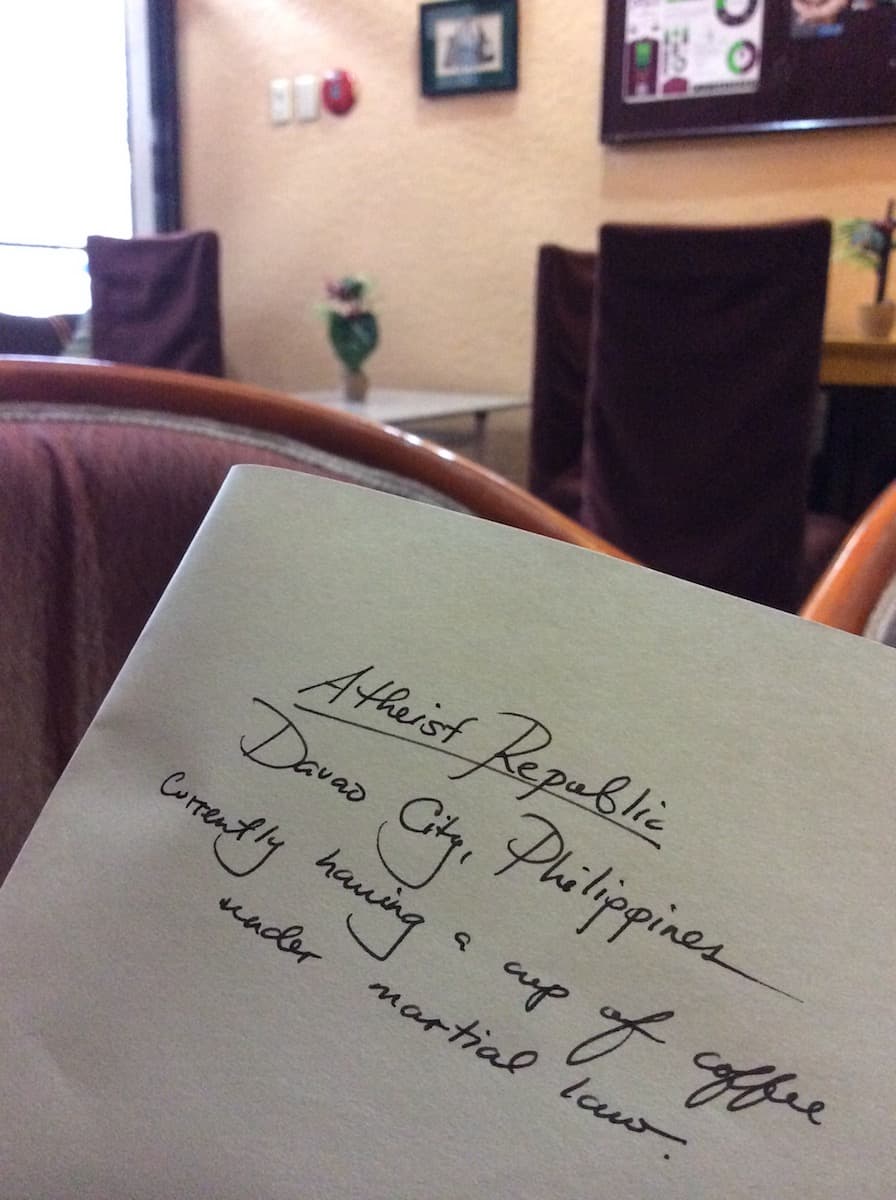 Atheist Republic
Davao City, Philippines
Currently having a cup of coffee
under martial law.